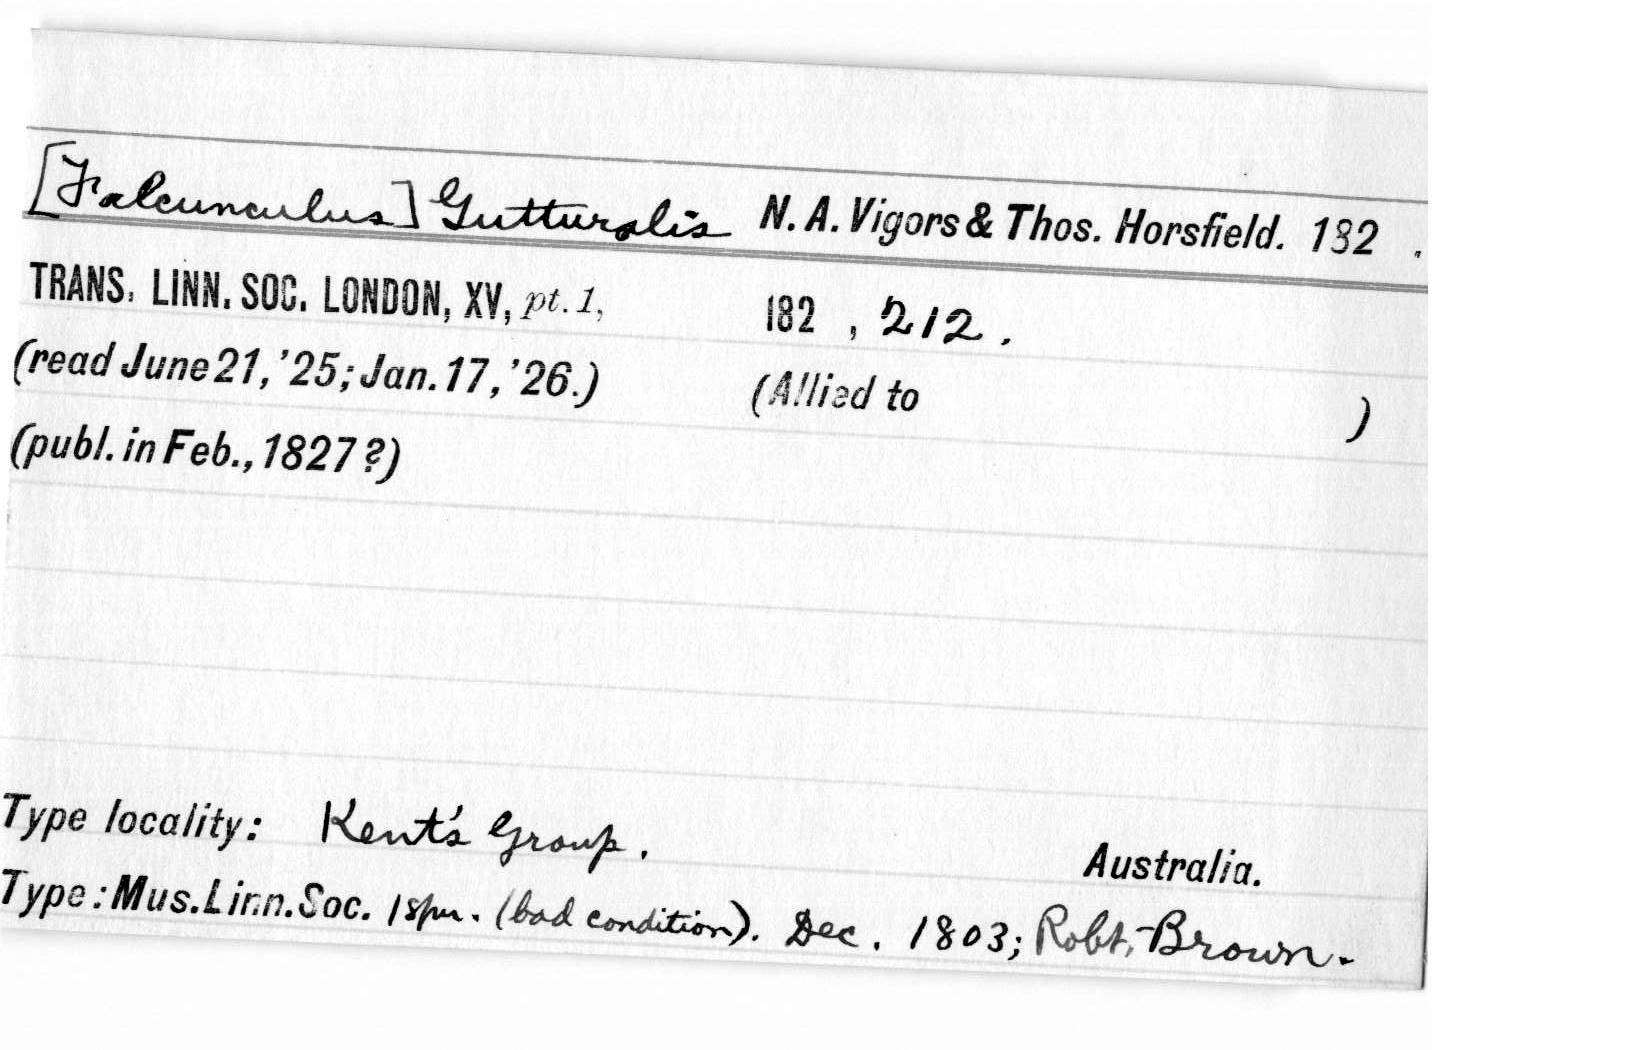 [Falcunculus] Gutturalis N. A. Vigors & Thos. Horsfield. 182 .
TRANS. LINN. SOC. LONDON, XV, pt. 1, 182 , 212 .
(read June 21, '25; Jan. 17, '26.) (Allied to )
(publ. in Feb., 1827 ?)
Type locality: Kent's Group. Australia.
Type: Mus. Linn. Soc. 1 spm. (bad condition). Dec. 1803; Robt. Brown.